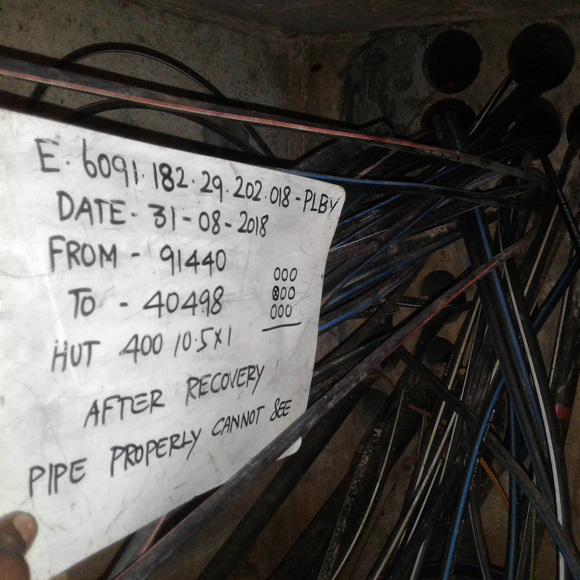 E. 6091.182.29.202.018-PLBV
DATE- 31-08-2018
FROM - 91440
TO - 40498
HUT 400/0.5X1
AFTER RECOVERY
PIPE PROPERLY CANNOT SEE